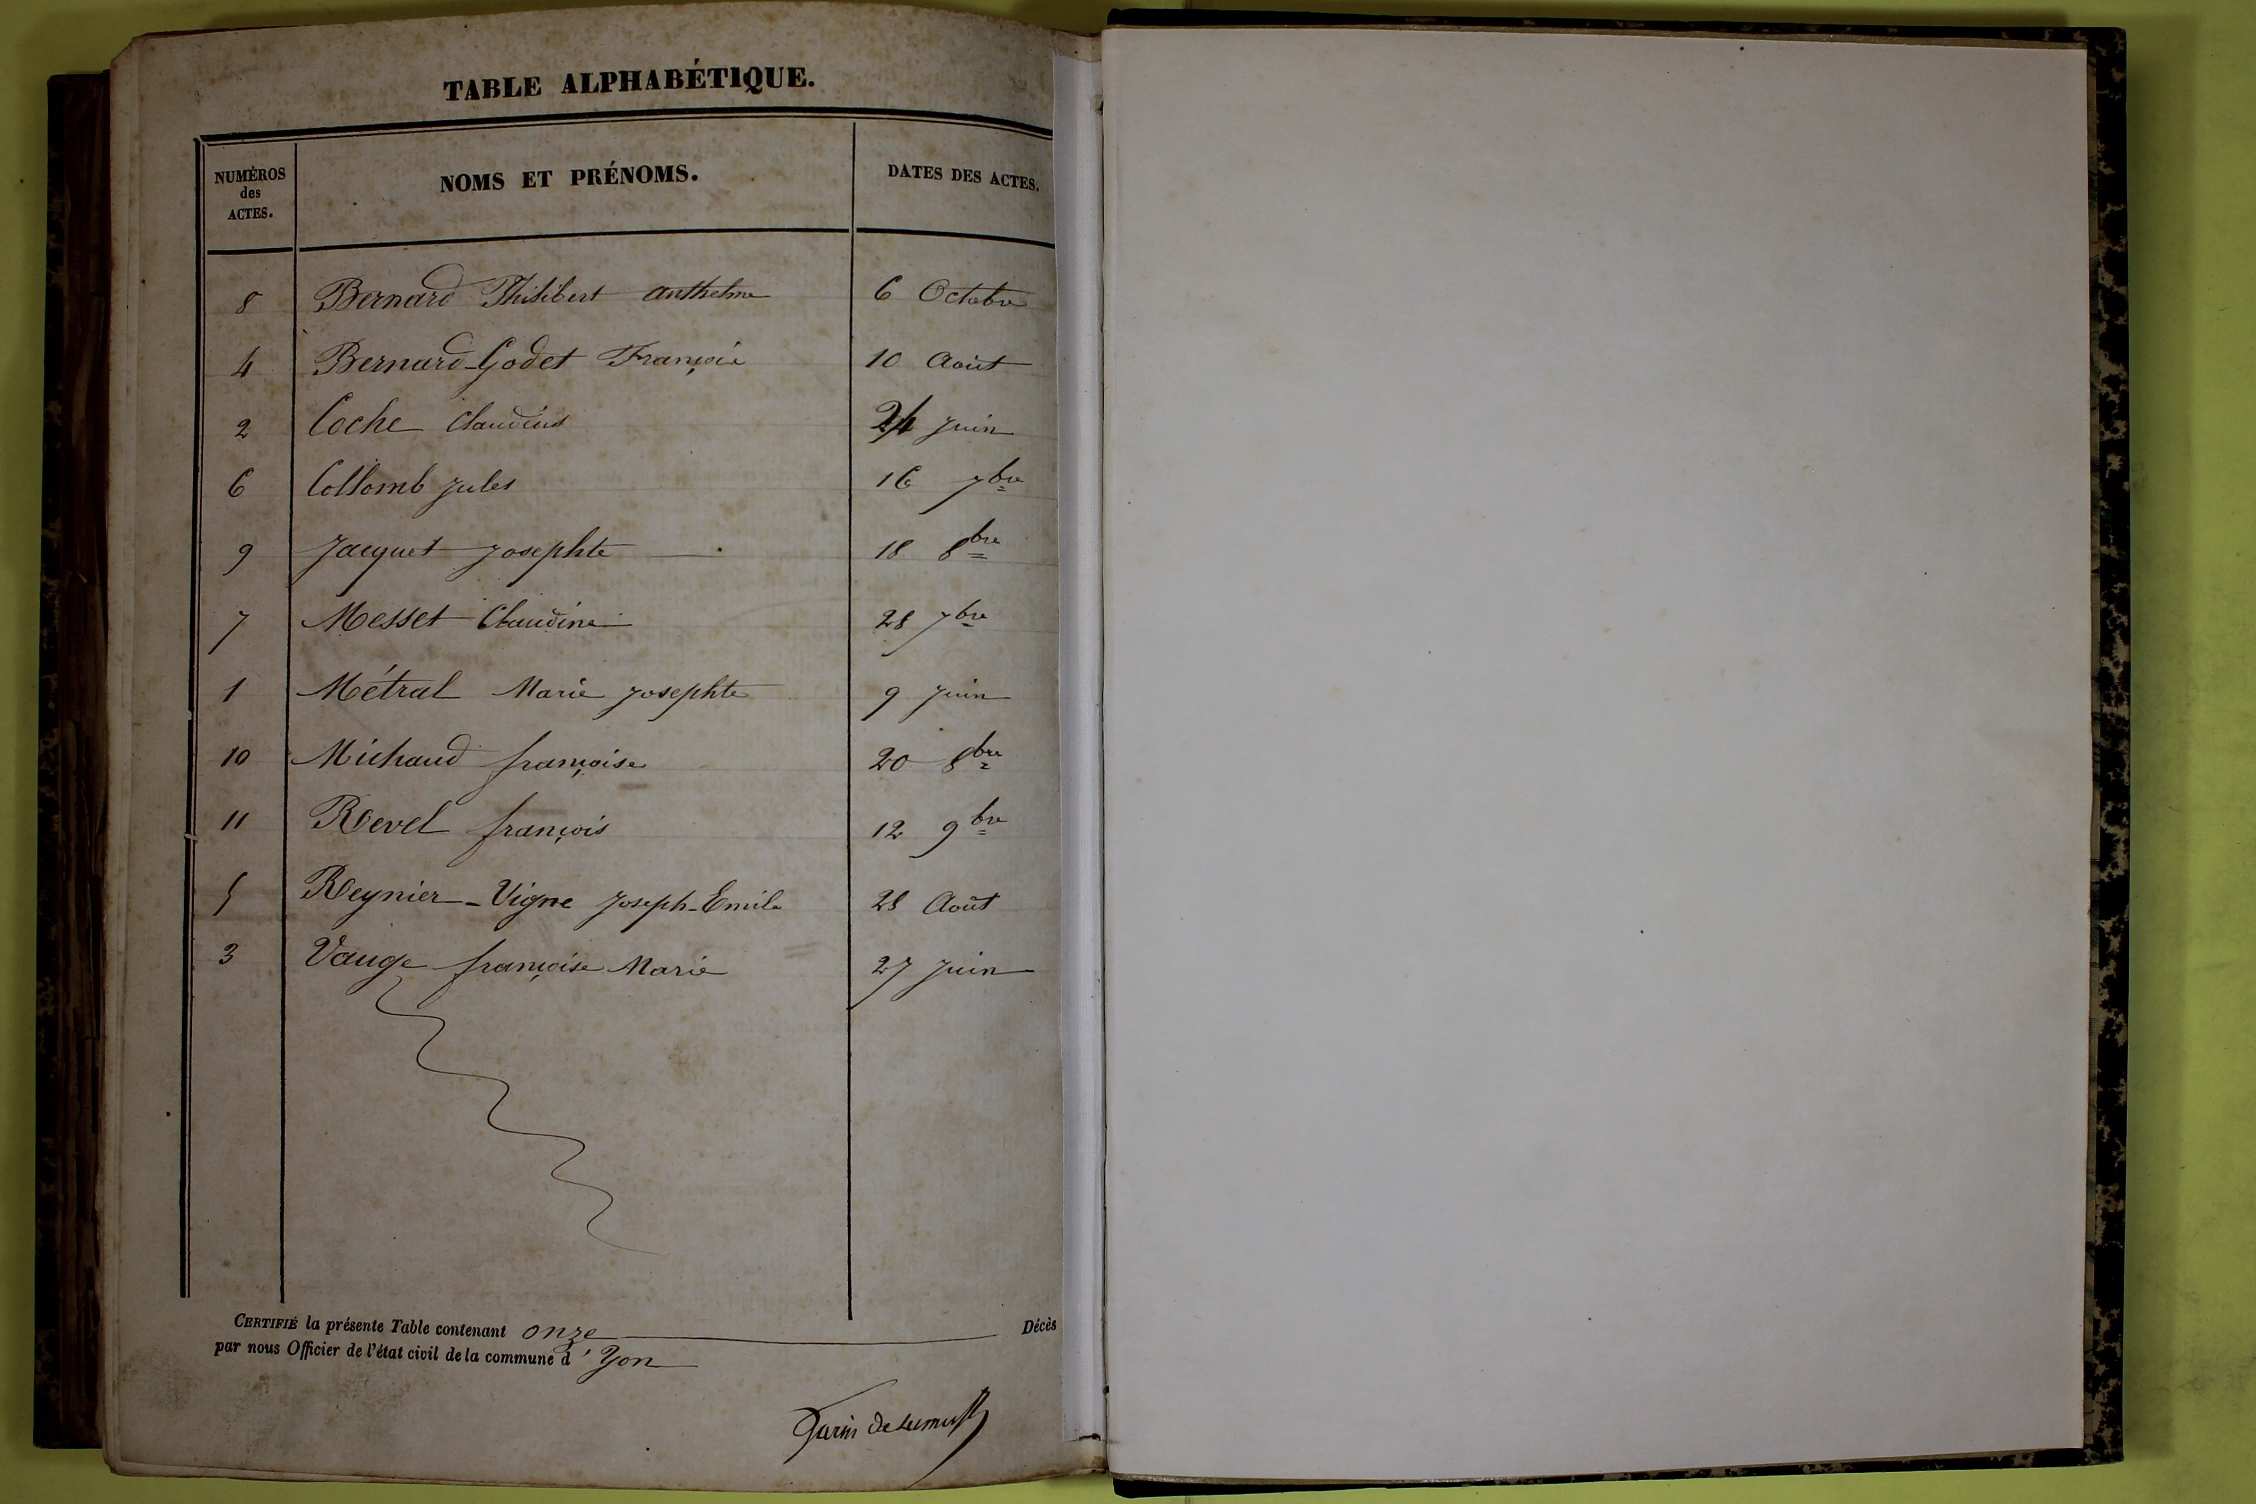 TABLE ALPHABÉTIQUE.
NUMÉROS des ACTES. NOMS ET PRÉNOMS. DATES DES ACTES.
8 Bernard Philibert Anthelme 6 Octobre
4 Bernard-Godet François 10 Août
2 Coche Claudius 24 Juin
6 Collomb Jules 16 7bre
9 Jacquet Josephte 18 8bre
7 Messet Claudine 28 7bre
1 Métral Marie Josephte 9 Juin
10 Michaud françoise 20 8bre
11 Revel françois 12 9bre
5 Reynier-Vigne Joseph-Emile 28 Août
3 Vauge françoise Marie 27 Juin
CERTIFIÉ la présente Table contenant onze Décès
par nous Officier de l'état civil de la commune d'Yon